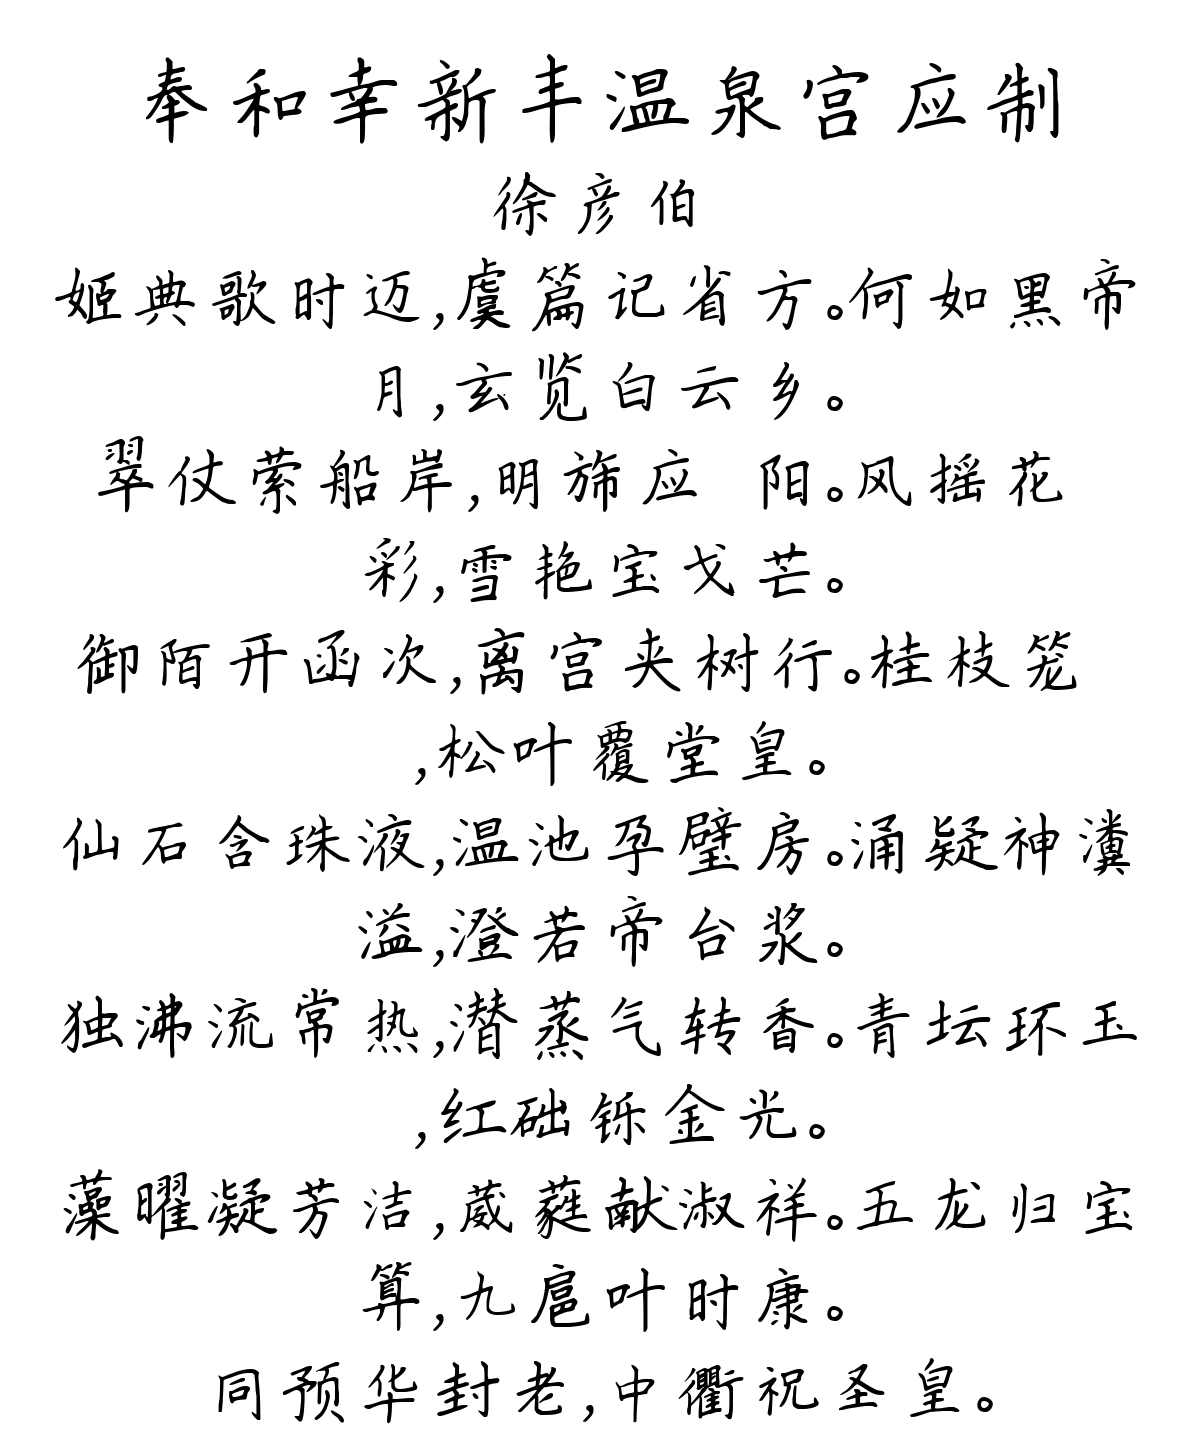 奉和幸新丰温泉宫应制
徐彦伯
姬典歌时迈,虞篇记省方。何如黑帝
月,玄览白云乡。
翠仗萦船岸,明旆应 阳。风摇花
彩,雪艳宝戈芒。
御陌开函次,离宫夹树行。桂枝笼
,松叶覆堂皇。
仙石含珠液,温池孕璧房。涌疑神瀵
溢,澄若帝台浆。
独沸流常热,潜蒸气转香。青坛环玉
,红础铄金光。
藻曜凝芳洁,葳蕤献淑祥。五龙归宝
算,九扈叶时康。
同预华封老,中衢祝圣皇。